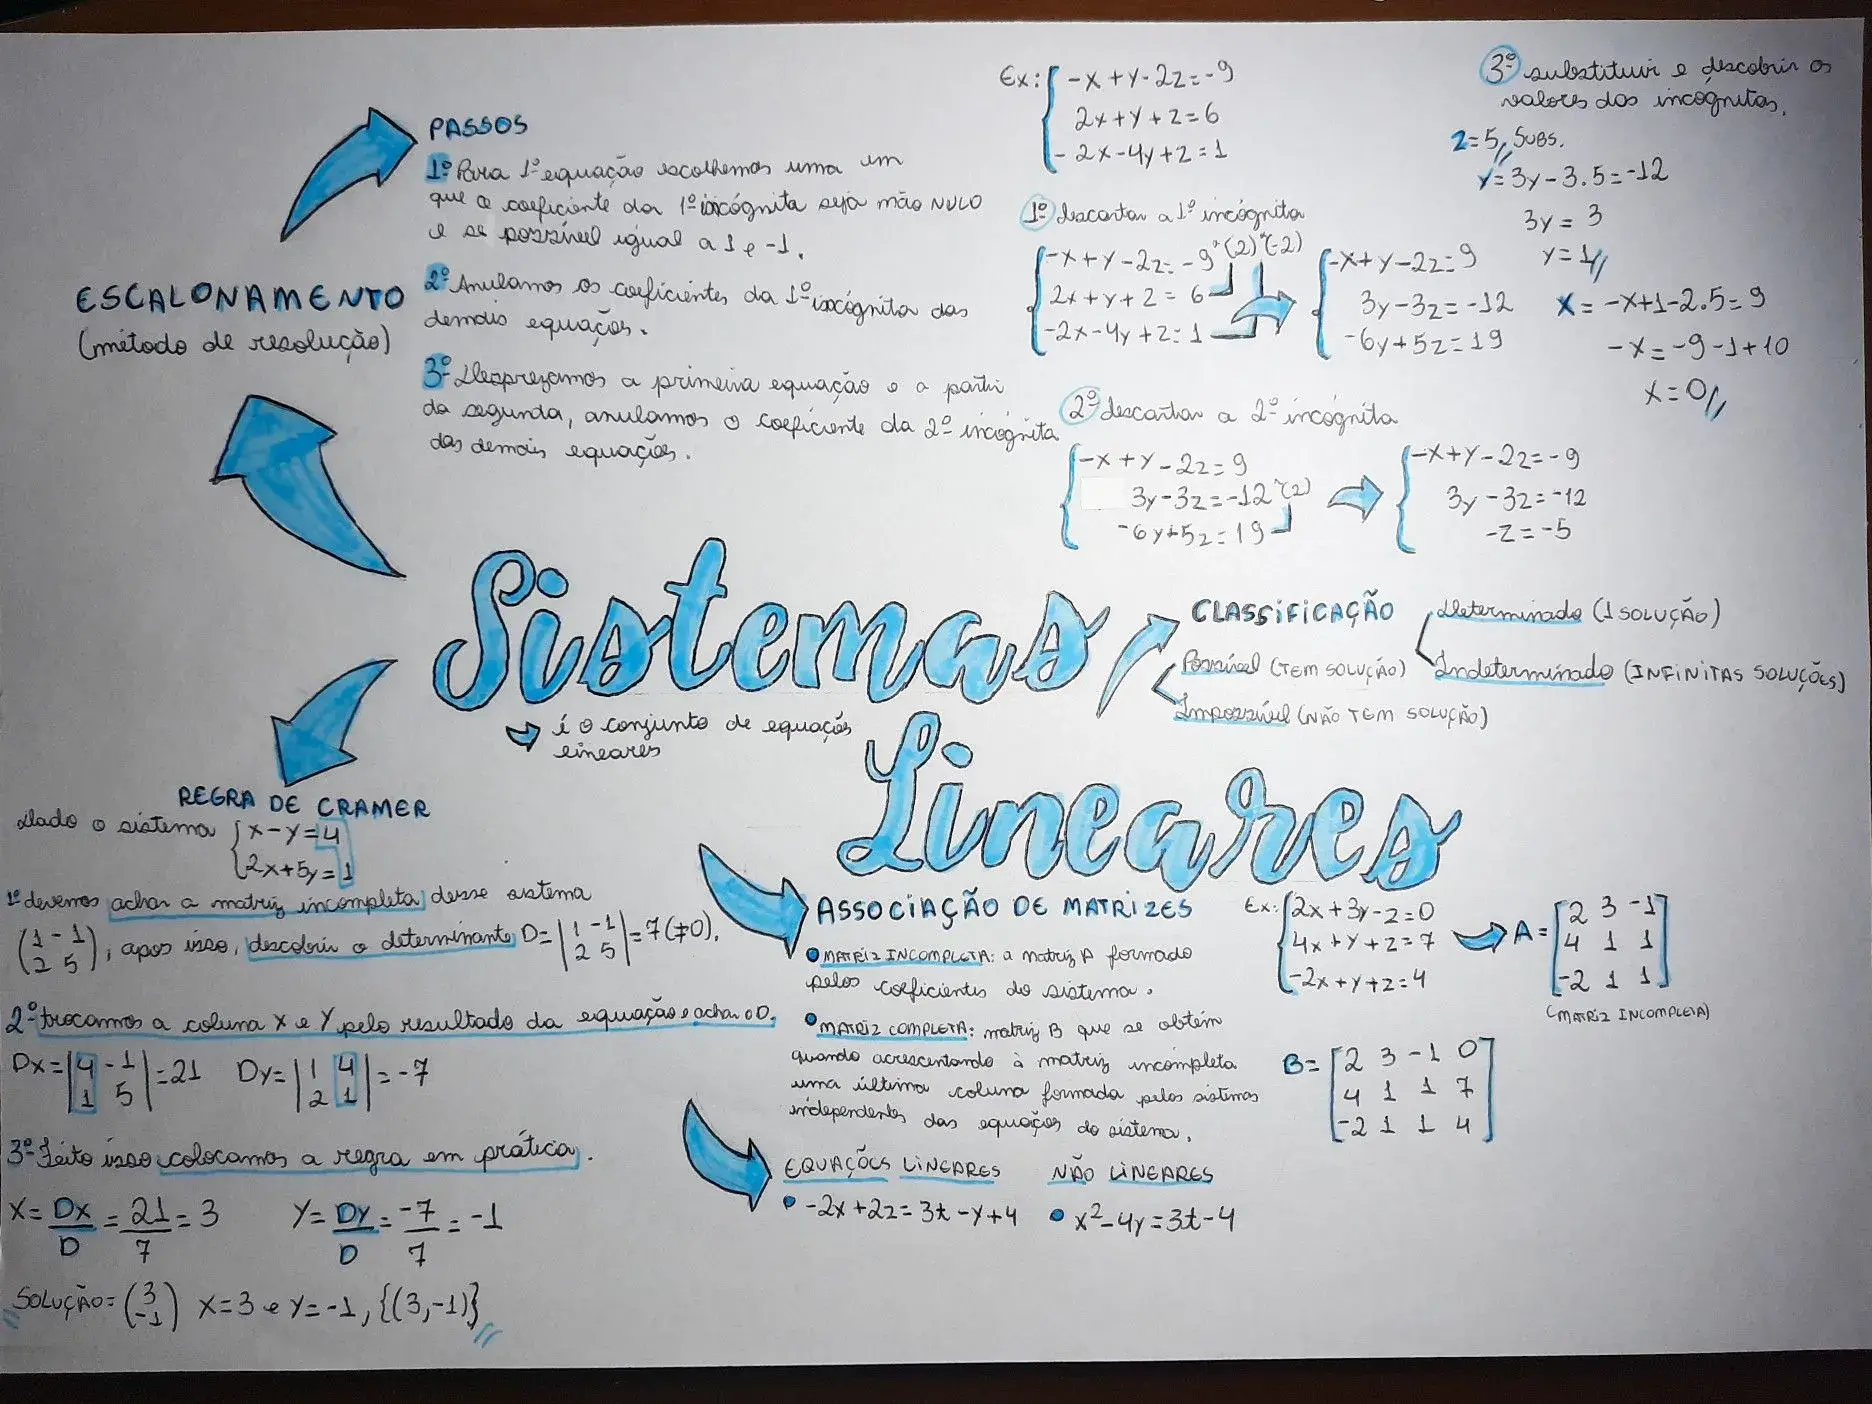 PASSOS
1º Para 1ª equação escolhemos uma em
que o coeficiente da 1º incógnita seja mão NULO
e se possível igual a 1 e -1.
2º Anulamos os coeficientes da 1º incógnita das
demais equações.
3º Desprezamos a primeira equação e a partir
da segunda, anulamos o coeficiente da 2º incógnita
das demais equações.
ESCALONAMENTO
(método de resolução)
Ex: { -x + y - 2z = -9
2x + y + z = 6
- 2x - 4y + z = 1
1º descartar a 1º incógnita
{ -x + y - 2z = -9 ˣ(2) ˣ(-2)
2x + y + z = 6
-2x - 4y + z = 1
{ -x + y - 2z = 9
3y - 3z = -12
-6y + 5z = 19
2º descartar a 2º incógnita
{ -x + y - 2z = 9
3y - 3z = -12 ˣ(2)
-6y + 5z = 19
{ -x + y - 2z = -9
3y - 3z = -12
-z = -5
3º substituir e descobrir os
valores das incógnitas.
z = 5, SUBS.
y = 3y - 3.5 = -12
3y = 3
y = 1//
x = -x + 1 - 2.5 = 9
-x = -9 - 1 + 10
x = 0//
Sistemas
Lineares
é o conjunto de equações
lineares
CLASSIFICAÇÃO
Possível (TEM SOLUÇÃO)
Impossível (NÃO TEM SOLUÇÃO)
Determinado (1 SOLUÇÃO)
Indeterminado (INFINITAS SOLUÇÕES)
REGRA DE CRAMER
Dado o sistema { x - y = 4
2x + 5y = 1
1º devemos achar a matriz incompleta desse sistema
(1 -1
2 5), apos isso, descobrir o determinante D = |1 -1
2 5| = 7 (≠0).
2º trocamos a coluna X e Y pelo resultado da equação e achar o D.
Dx = |4 -1
1 5| = 21 Dy = |1 4
2 1| = -7
3º Feito isso colocamos a regra em prática.
X = Dx/D = 21/7 = 3 Y = Dy/D = -7/7 = -1
SOLUÇÃO = (3
-1) X = 3 e Y = -1, {(3,-1)}//
ASSOCIAÇÃO DE MATRIZES
• MATRIZ INCOMPLETA: a matriz A formado
pelos coeficientes do sistema.
• MATRIZ COMPLETA: matriz B que se obtém
quando acrescentando à matriz incompleta
uma última coluna formada pelos sistemas
independentes das equações do sistema.
Ex: { 2x + 3y - z = 0
4x + y + z = 7
-2x + y + z = 4
A = [2 3 -1
4 1 1
-2 1 1]
(MATRIZ INCOMPLETA)
B = [2 3 -1 0
4 1 1 7
-2 1 1 4]
EQUAÇÕES LINEARES
• -2x + 2z = 3t - y + 4
NÃO LINEARES
• x² - 4y = 3t - 4